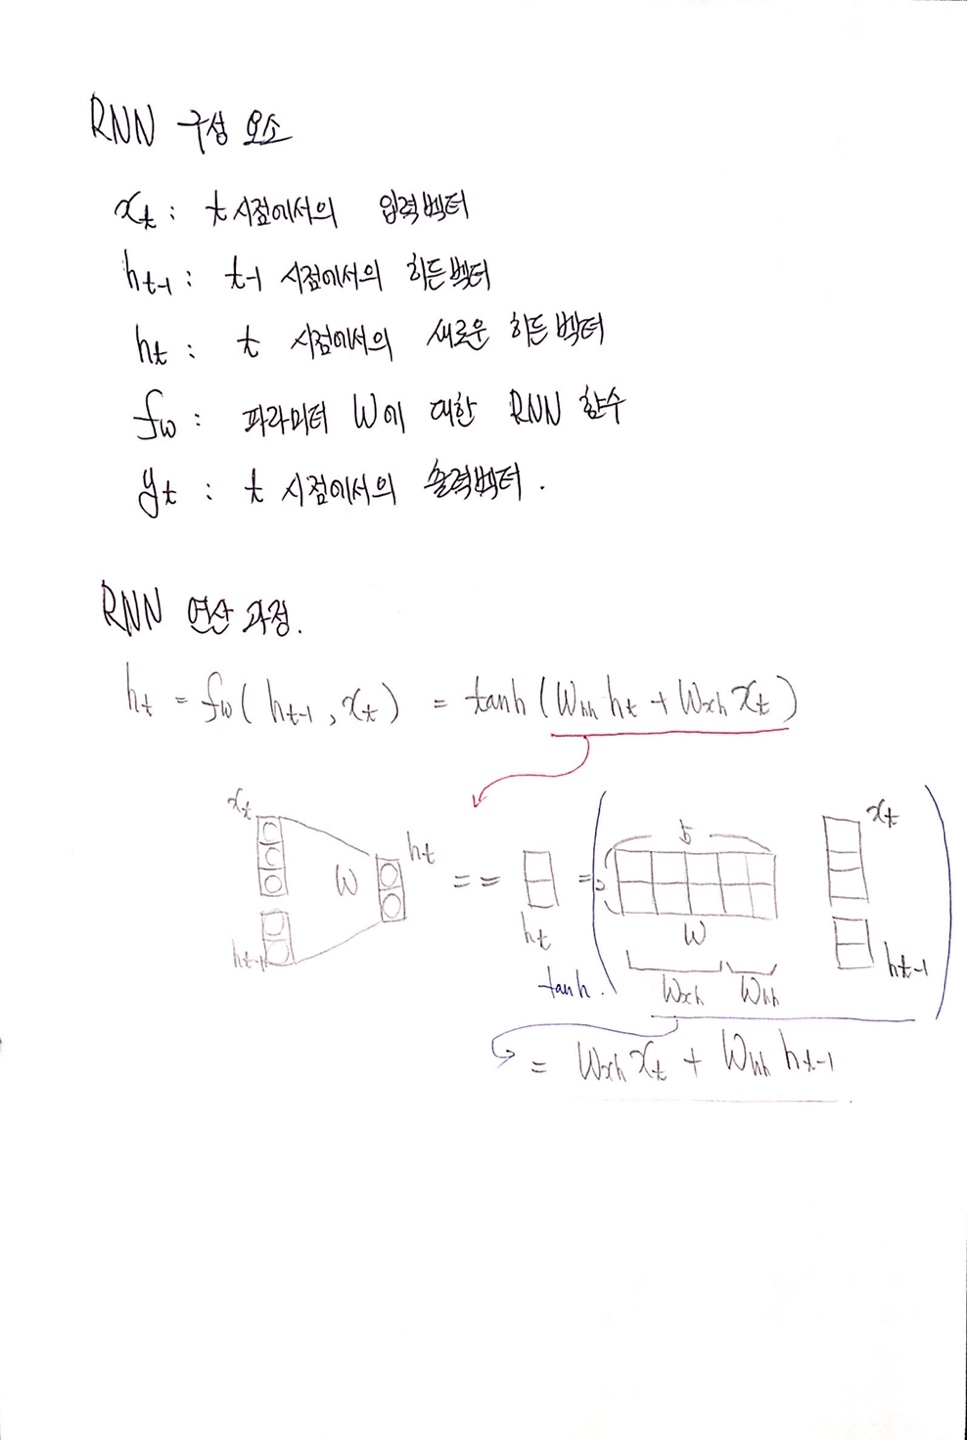 RNN 구성 요소
xt : t시점에서의 입력벡터
ht-1 : t-1 시점에서의 히든벡터
ht : t 시점에서의 새로운 히든벡터
fw : 파라미터 W에 대한 RNN 함수
yt : t 시점에서의 출력벡터.
RNN 연산 과정.
ht = fw(ht-1, xt) = tanh(Whh ht + Wxh xt)
xt
ht
W
ht-1
==
ht
=
5
2
W
Wxh Whh
xt
ht-1
tanh.
= Wxh xt + Whh ht-1